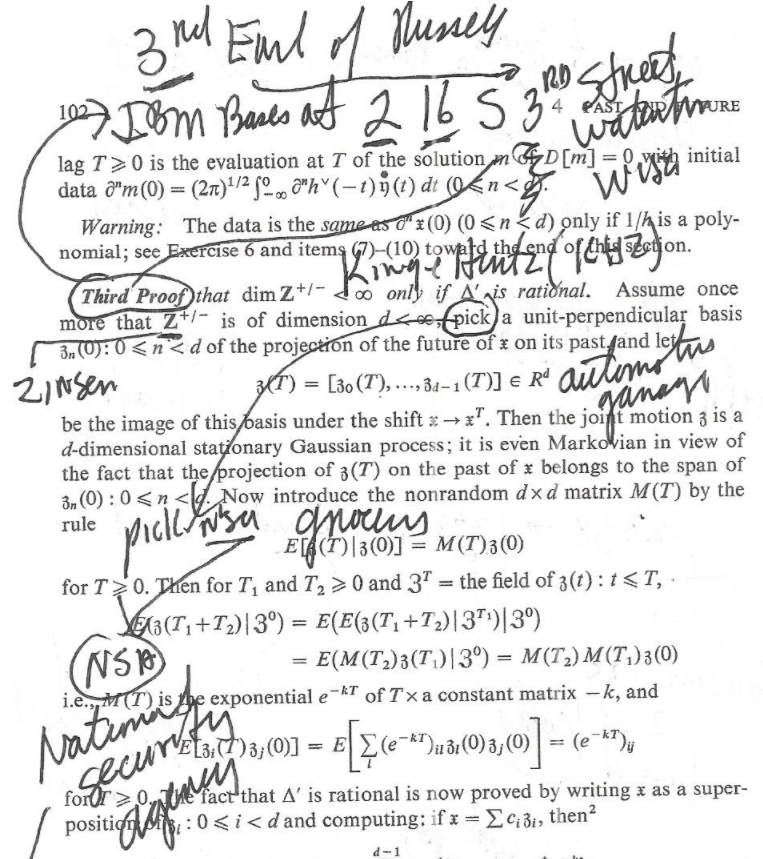 3rd Earl of Russell
102 IBM Bases at 2 16 S 3RD Street
4 PAST AND FUTURE
lag T ⩾ 0 is the evaluation at T of the solution m of D[m] = 0 with initial
data ∂ⁿm(0) = (2π)^{1/2} ∫_{−∞}^{0} ∂ⁿh^∨(−t) ẏ(t) dt (0 ⩽ n < d).
Warning: The data is the same as ∂ⁿ𝔵(0) (0 ⩽ n < d) only if 1/h is a poly-
nomial; see Exercise 6 and items (7)–(10) toward the end of this section.
(KHZ)
Third Proof that dim Z^{+/−} < ∞ only if Δ′ is rational. Assume once
more that Z^{+/−} is of dimension d < ∞, pick a unit-perpendicular basis
𝔷ₙ(0): 0 ⩽ n < d of the projection of the future of 𝔵 on its past, and let
𝔷(T) = [𝔷₀(T), …, 𝔷_{d−1}(T)] ∈ R^d
automotive
garage
be the image of this basis under the shift 𝔵 → 𝔵^T. Then the joint motion 𝔷 is a
d-dimensional stationary Gaussian process; it is even Markovian in view of
the fact that the projection of 𝔷(T) on the past of 𝔵 belongs to the span of
𝔷ₙ(0) : 0 ⩽ n < d. Now introduce the nonrandom d × d matrix M(T) by the
rule
pick n sa grocers
E[𝔷(T)|𝔷(0)] = M(T)𝔷(0)
for T ⩾ 0. Then for T₁ and T₂ ⩾ 0 and ℨ^T = the field of 𝔷(t) : t ⩽ T,
E(𝔷(T₁+T₂)|ℨ⁰) = E(E(𝔷(T₁+T₂)|ℨ^{T₁})|ℨ⁰)
NSA
= E(M(T₂)𝔷(T₁)|ℨ⁰) = M(T₂)M(T₁)𝔷(0)
i.e., M(T) is the exponential e^{−kT} of T × a constant matrix −k, and
National
security
agency
E[𝔷ᵢ(T)𝔷ⱼ(0)] = E[∑_l (e^{−kT})_{il}𝔷_l(0)𝔷ⱼ(0)] = (e^{−kT})_{ij}
for T ⩾ 0. The fact that Δ′ is rational is now proved by writing 𝔵 as a super-
position of 𝔷ᵢ : 0 ⩽ i < d and computing: if 𝔵 = ∑cᵢ𝔷ᵢ, then²
d−1